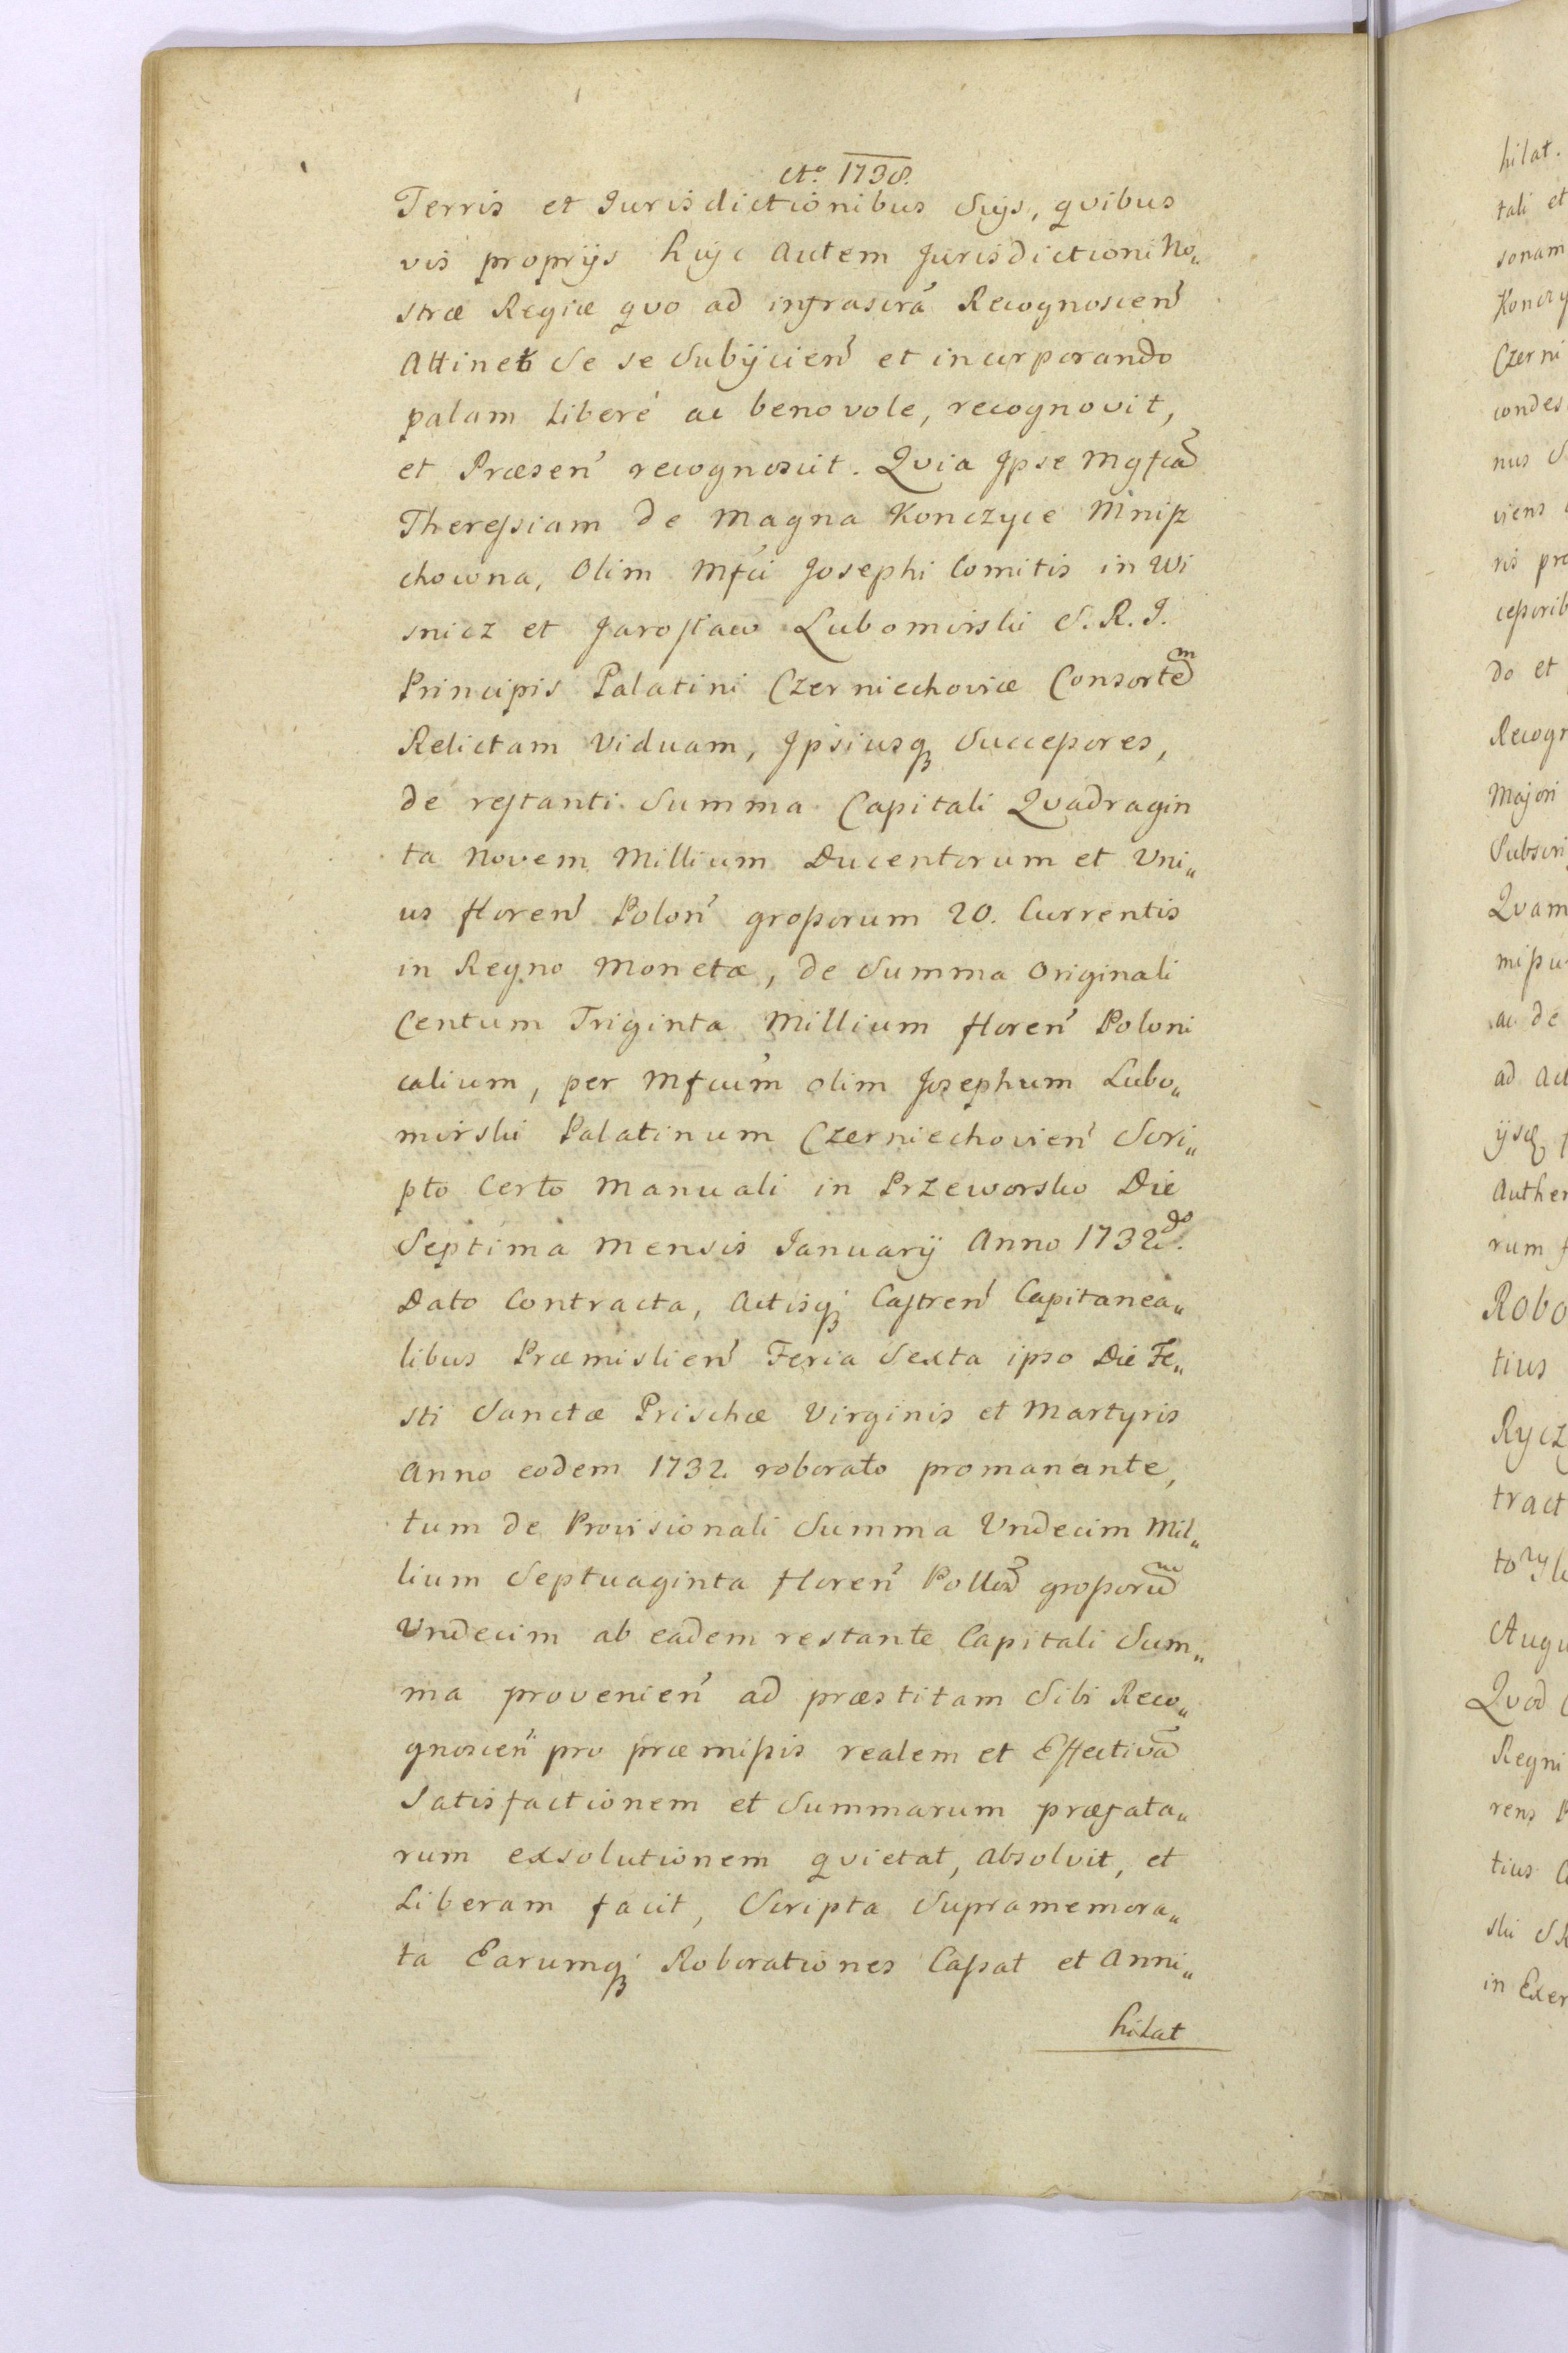 Ao. 1738.
Terris et Jurisdictionibus Suys, quibus
vis proprijs huyc autem Jurisdictioni No„
stræ Regiæ quo ad infrascrã Recognoscen̄
Attinet Se se Subijcien̄ et incorporando
palam Liberé ac benovole, recognovit,
et Præsen̄ recognoscit. Quia Ipse Mgfcã
Theressiam de Magna Konczyce Mnisz
chowna, Olim Mfci Josephi Comitis in Wi
snicz et Jarosław Lubomirski S. R. I.
Principis Palatini Czerniechoviæ Consortem
Relictam Viduam, Ipsiusq̃ Successores,
de restanti Summa Capitali Quadragin
ta Novem Millium Ducentorum et Uni„
us floren̄ Polon̄ grossorum 20. Currentis
in Regno Monetæ, de Summa Originali
Centum Triginta Millium floren̄ Poloni
calium, per Mfcum olim Josephum Lubo„
mirski Palatinum Czerniechovien̄ Scri„
pto Certo Manuali in Przeworsko Die
Septima Mensis Januarij Anno 1732do.
Dato Contracta, Actisq̃ Castren̄ Capitanea„
libus Præmislien̄ Feria Sexta ipso Die Fe„
sti Sanctæ Prischæ Virginis et Martyris
Anno eodem 1732. roborato promanante,
tum de Provisionali Summa Undecim Mil„
lium Septuaginta floren̄ Pollon̄ grossorum
Undecim ab eadem restante Capitali Sum„
ma provenien̄ ad præstitam Sibi Reco„
gnoscen̄ pro præmissis realem et Effectivã
Satisfactionem et Summarum præfata„
rum exsolutionem quietat, absolvit, et
Liberam facit, Scripta Supramemora„
ta Earumq̃ Roborationes Cassat et Anni„
hilat
hilat.
tali et
sonam
Konczy
Czerni
condes
nus
viens
ris pro
cessorib
do et
Recogn
Majori
Subscri
Quam
missu
ac de
ad Act
Authen
rum
Robo
tius
Rycz
tract
Augu
Quod
Regni
rens
tius
ski SR
in Exer